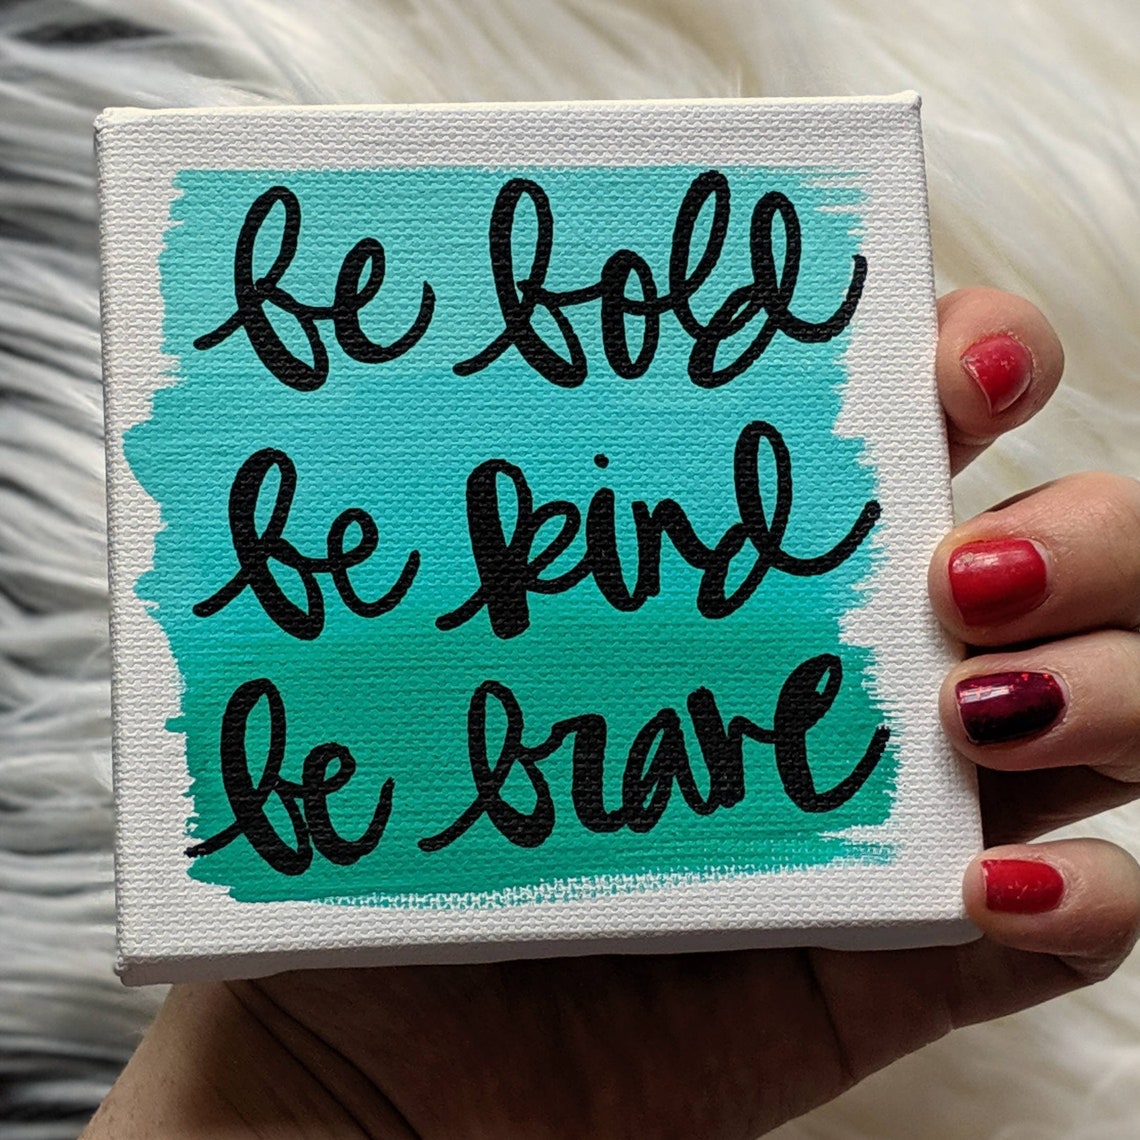 be bold
be kind
be brave